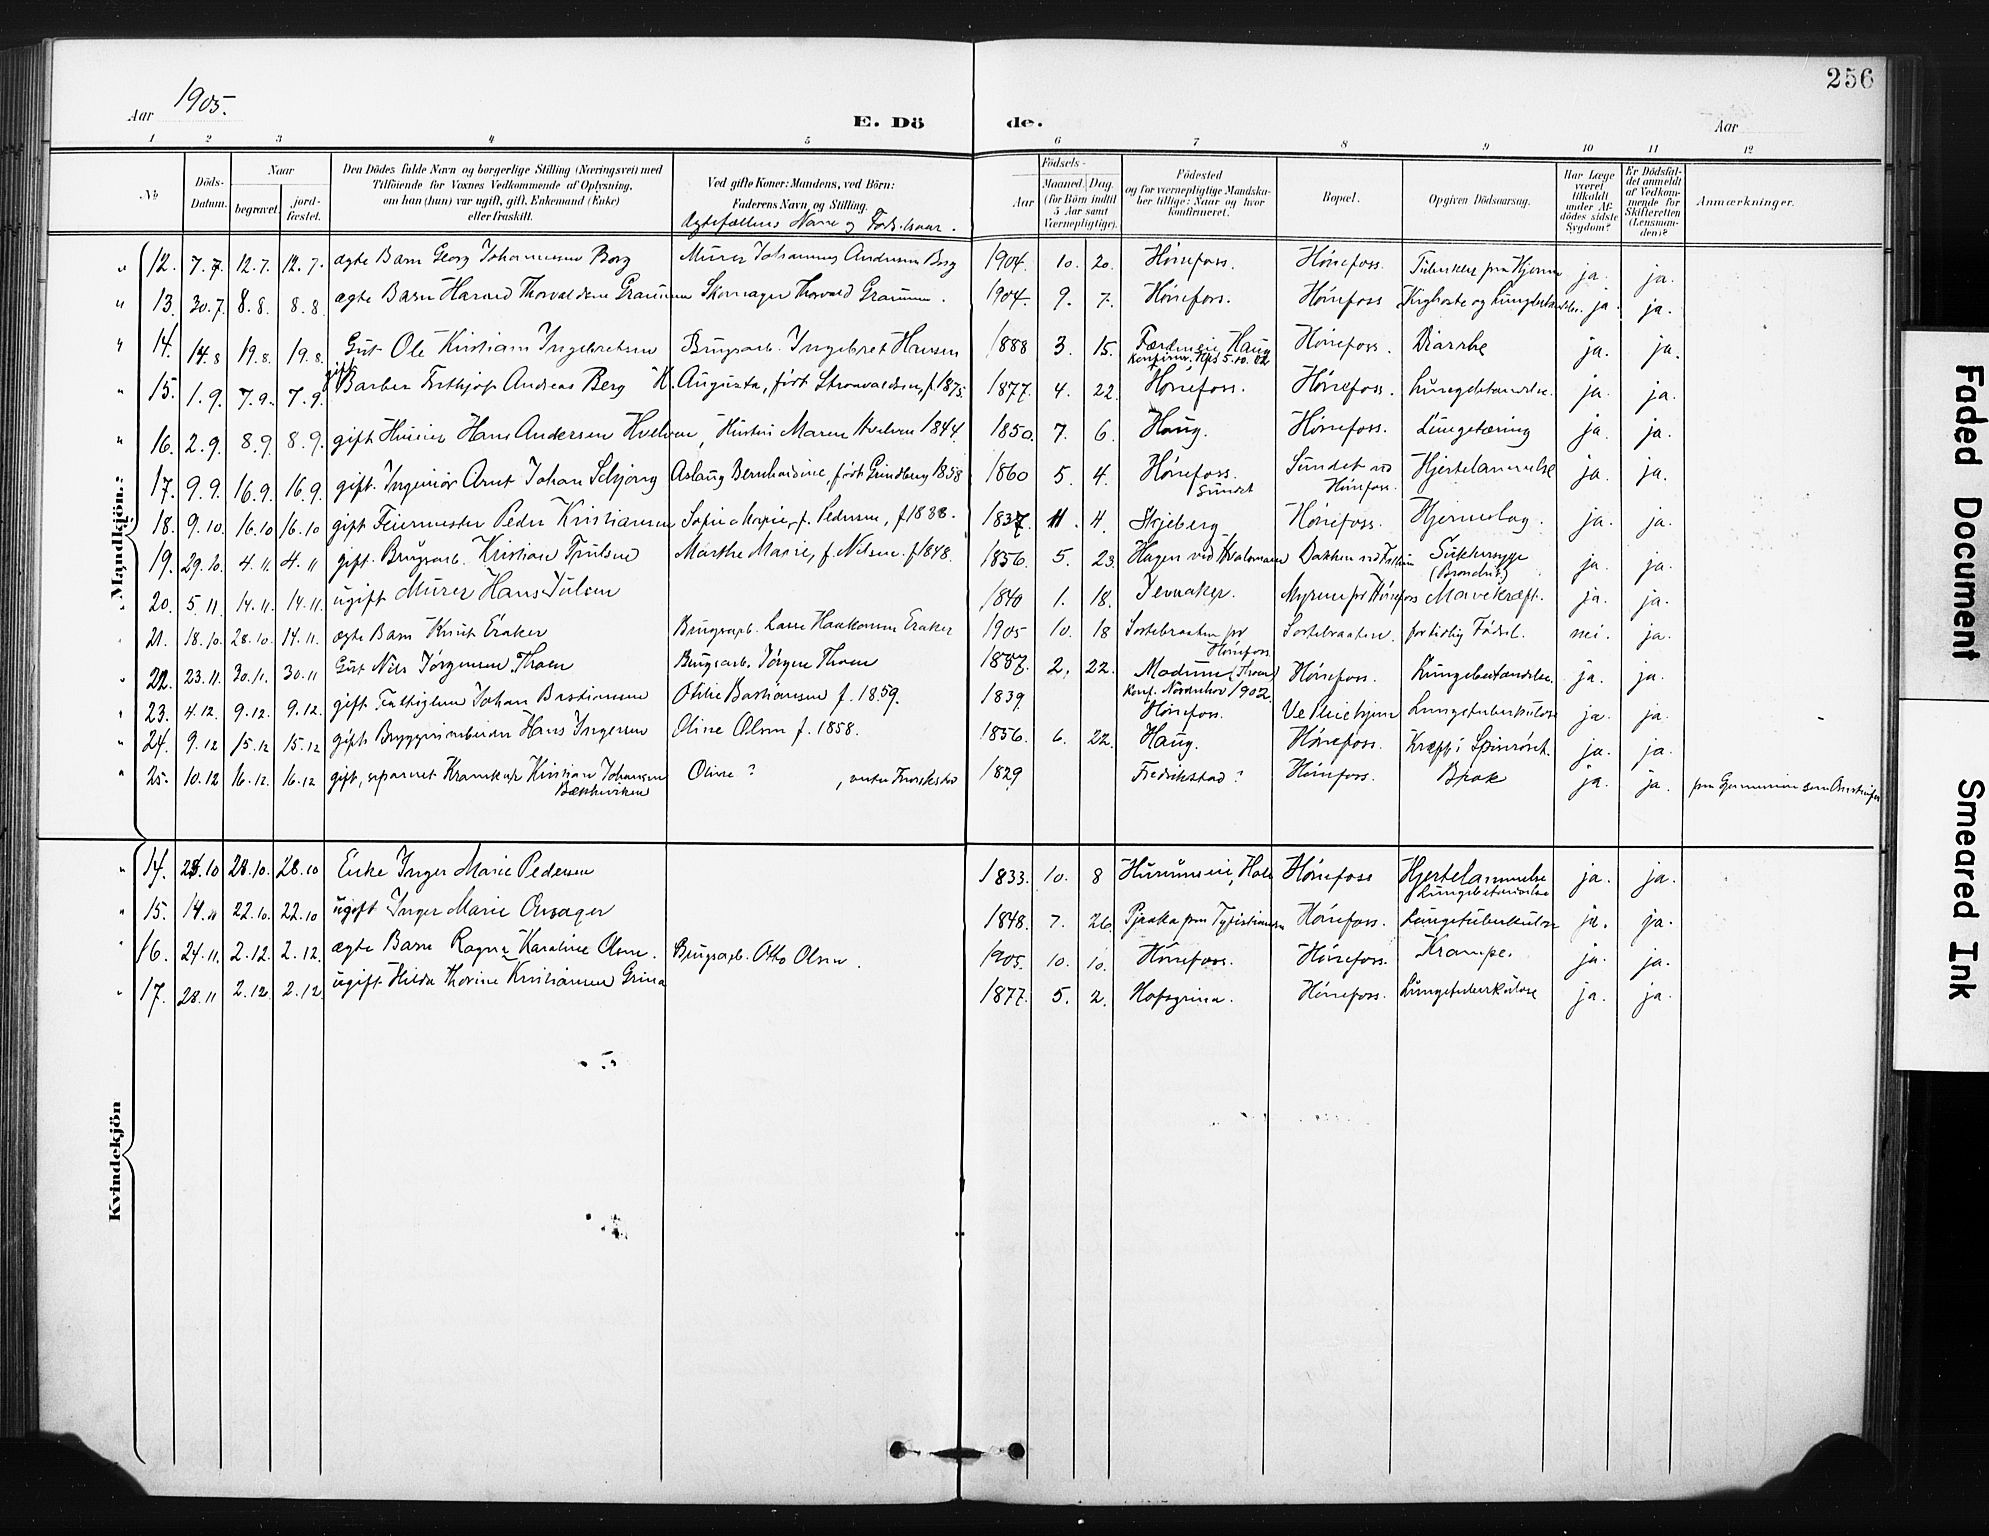 256
Aar 1905.
E. Döde.
Aar
1 2 3 4 5 6 7 8 9 10 11 12
No
Döds-Datum.
Naar
begravet.
jord-fæstet.
Den Dödes fulde Navn og borgerlige Stilling (Næringsvei) med
Tilföiende for Voxnes Vedkommende af Oplysning,
om han (hun) var ugift, gift, Enkemand (Enke)
eller fraskilt.
Ved gifte Koner: Mandens, ved Börn:
Faderens Navn og Stilling.
Ægtefællens Navn og Fødselsaar.
Födsels-
Aar
Maaned.
Dag.
(for Börn indtil
5 Aar samt
Værnepligtige).
Födested
og for værnepligtige Mandska-
ber tillige: Naar og hvor
konfirmeret.
Bopæl.
Opgiven Dödsaarsag.
Har Læge
været
tilkaldt
under Af-
dödes sidste
Sygdom?
Er Dödsfal-
det anmeldt
af Vedkom-
mende for
Skifteretten
(Lensman-
den)?
Anmærkninger.
Mandkjön:
" 12. 7.7. 12.7. 12.7. ægte Barn Georg Johannesen Borg Murer Johannes Andersen Borg 1904. 10. 20. Hönefoss. Hönefoss. Tuberkler paa Hjernen ja. ja.
" 13. 30.7. 8.8. 8.8. ægte Barn Harald Thorvaldsen Skomager Thorvald 1904. 9. 7. Hönefoss. Hönefoss Kighoste og Lungebetændelse. ja. ja.
" 14. 14.8 19.8. 19.8. Gut Ole Kristian Ingebretsen Brugsarb. Ingebret Hansen 1888 3. 15. Haug Hönefoss. Diarrhe ja. ja.
konfirm. 5.10.02
" 15. 1.9. 7.9. 7.9. gift Barber Frithjof Andreas Berg K. Augusta, født f. 1875. 1877. 4. 22. Hönefoss. Hönefoss. Lungebetændelse. ja. ja.
" 16. 2.9. 8.9. 8.9. gift Hans Andersen Hvelven, Hustru Maren Hvelven 1844. 1850. 7. 6. Haug. Hönefoss. Lungetæring ja. ja.
17. 9.9. 16.9. 16.9. gift. Ingeniör Arnt Johan Schjong Aslaug Bernhardine, født Grundberg 1858 1860 5. 4. Hönefoss. Sundet Sundet ved Hönefoss. Hjertelammelse ja. ja.
18. 9.10. 16.10 16.10 gift Feiermester Peder Kristiansen Sofie Marie, f. Pedersen, f. 1838. 1837. 11. 4. Skjeberg Hönefoss. Hjerneslag. ja. ja.
19. 29.10. 4.11. 4.11 gift. Brugsarb. Kristian Trulsen Marthe Marie, f. Nilsen. f. 1848. 1856. 5. 23. Hagen ved Bakken ved Sukkersyge ja. ja.
20. 5.11. 14.11. 14.11. ugift Murer Hans Julsen 1840 1. 18. Jevnaker. Myren Hönefoss Mavekræft. ja. ja.
21. 18.10. 28.10. 14.11. ægte Barn Knut Eraker Brugsarb. Lars Haakonsen Eraker 1905 10. 18 Sortebraaten pr Hönefoss. Sortebraaten. for tidlig Födsel. nei. ja.
22. 23.11. 30.11. 30.11 Gut Nils Jörgensen Thoen Brugsarb. Jörgen Thoen 1887. 2. 22. Modum (Thoen) Hönefoss. Lungebetændelse. ja. ja.
konf. Norderhov 1902.
23. 4.12. 9.12. 9.12. gift Johan Bastiansen Otilie Bastiansen f. 1859. 1839 Hönefoss. Lungetuberkulose ja. ja.
24. 9.12 15.12 15.12 gift Bryggeriarbeider Hans Ingersen Oline Olsen f. 1858. 1856. 6. 22. Haug. Hönefoss. Kræft i Spiserøret. ja. ja.
25. 10.12 16.12. 16.12 gift, separeret Kristian Johansen Bækkeviken Oline ? 1829 Fredrikstad? Hönefoss. Brok ja. ja.
Kvindekjön
" 14. 28.10. 28.10 Enke Inger Marie Pedersen 1833. 10. 8 Hole Hönefoss Hjertelammelse Lungebetændelse ja. ja.
" 15. 22.10. 22.10 ugift Inger Marie 1848. 7. 26. Hönefoss. Lungetuberkulose ja. ja.
" 16. 24.11. 2.12. 2.12. ægte Barn Ragna Karoline Olsen. Brugsarb. Otto Olsen. 1905. 10. 10. Hönefoss. Hönefoss. Krampe. ja. ja.
" 17. 28.11 2.12. 2.12 ugift Hilda Thorine Kristiansen Grina 1877. 5. 2. Hofsgrina. Hönefoss. Lungetuberkulose ja. ja.
Faded Document
Smeared Ink